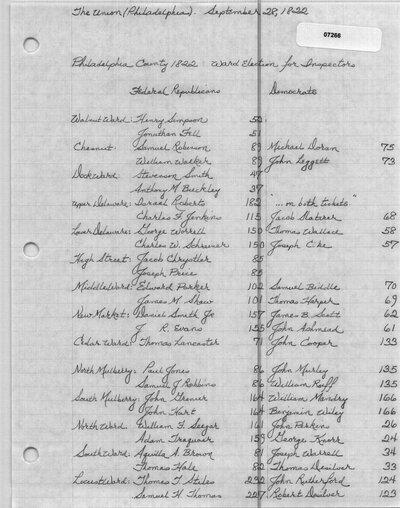 The Union (Philadelphia). September 28, 1822
07266
Philadelphia County 1822 : Ward Election for Inspectors
Federal Republicans Democrats
Walnut Ward: Henry Simpson 52
Jonathan Fell 51
Chesnut: Samuel Robinson 89 Michael Doran 75
William Walker 89 John Leggett 73
Dock Ward: Stevenson Smith 47
Anthony M. Buckley 37
Upper Delaware: Israel Roberts 182 "...on both tickets"
Charles F. Jenkins 115 Jacob 68
Lower Delaware: George Worrell 150 Thomas Wallace 58
Charles W. Schreiner 150 Joseph 57
High Street: Jacob Chrystler 85
Joseph Price 85
Middle Ward: Edward Parker 102 Samuel Biddle 70
James M. Shaw 101 Thomas Harper 69
New Market: Daniel Smith Jr 157 James B. Scott 62
J R. Evans 155 John Ashmead 61
Cedar Ward: Thomas Lancaster 71 John Cooper 133
North Mulberry: Paul Jones 86 John Murley 135
Samuel J Robbins 86 William Ruff 135
South Mulberry: John Greiner 164 William Mandry 166
John Hart 164 Benjamin Wiley 166
North Ward: William F. Seeger 161 John Perkins 26
Adam Traquair 159 George Knorr 24
South Ward: Aquilla A. Brown 81 Joseph Worrell 34
Thomas Hale 82 Thomas Desilver 33
Locust Ward: Thomas T. Stiles 232 John Rutherford 124
Samuel H. Thomas 227 Robert Desilver 123